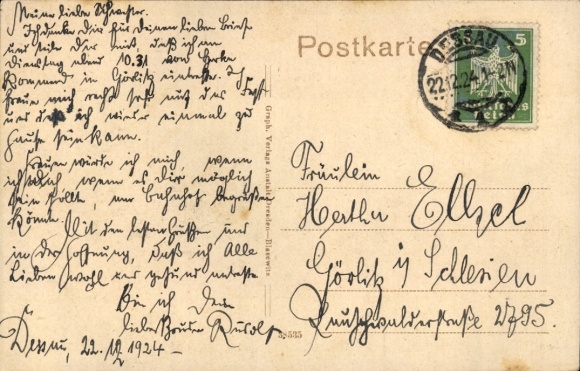 Meine liebe Schwester.
Ich danke Dir für Deinen lieben Brief
und teile Dir mit, daß ich am
Dienstag abend 10.31 von
kommend in Görlitz eintreffe. Ich
freue mich recht sehr auf das Fest
und daß ich wieder einmal zu
Hause sein kann.
Freuen würde ich mich, wenn
ich auch wenn es dir möglich
sein sollte, am Bahnhof begrüßen
könnte.
Mit den besten Grüßen und
in der Hoffnung, daß ich Alle
Lieben wohl und gesund
Bin ich Dein
lieber Bruder Rudolf
Dessau, 22.12.1924
Graph. Verlags-Anstalt, Dresden-Blasewitz
58535
Postkarte
DESSAU
22.12.24
5
Fräulein
Hertha
Görlitz i/ Schlesien
Rauschwalderstraße